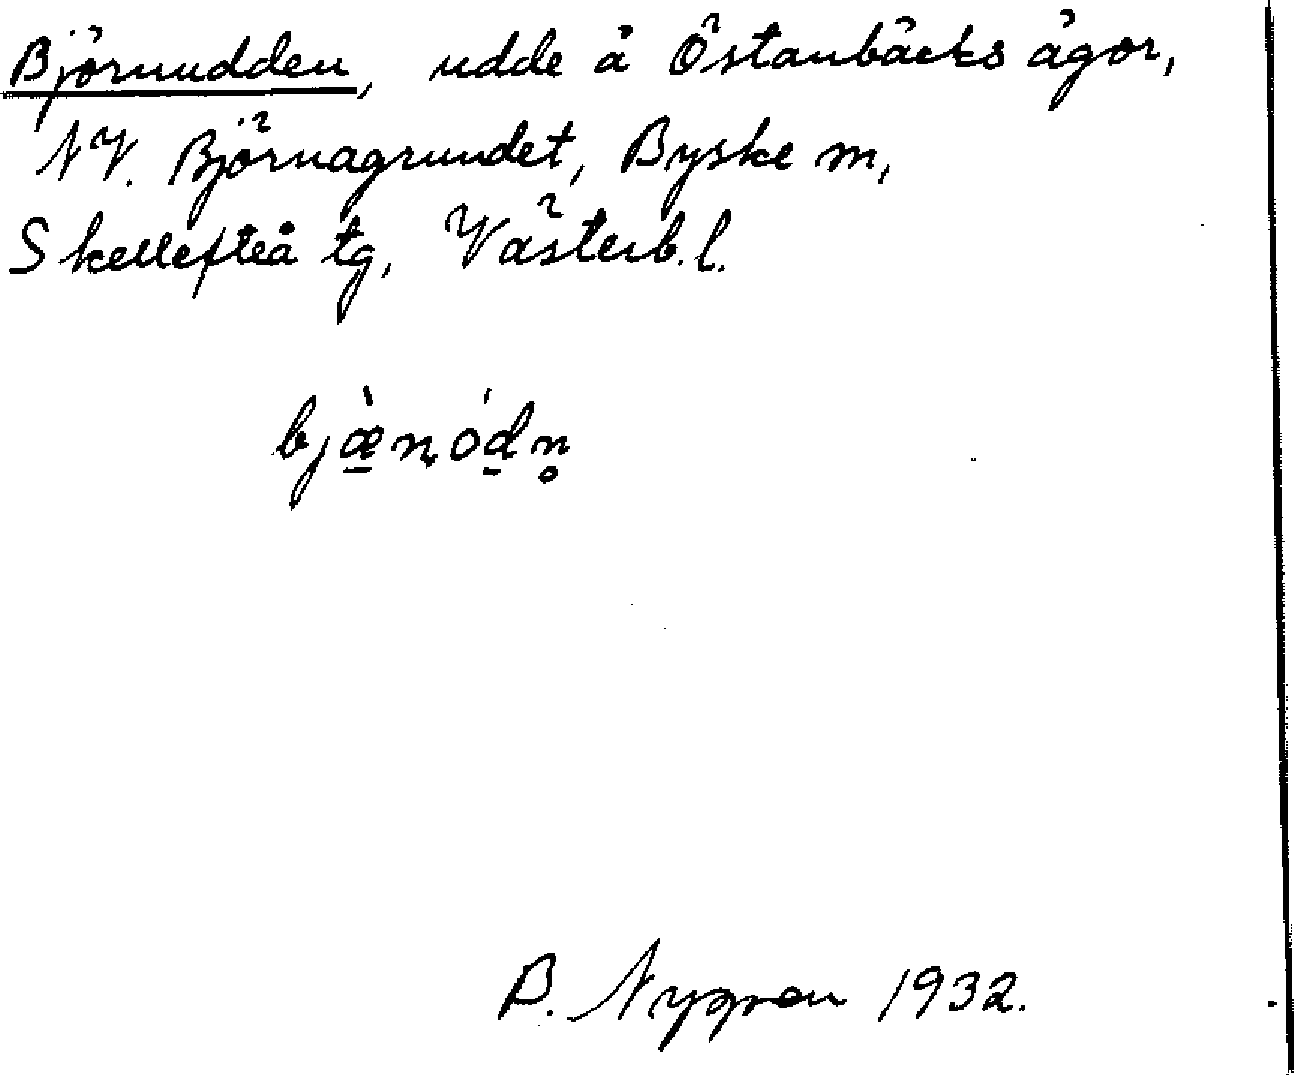 Björnudden, udde å Östanbäcks ägor,
NV. Björnagrundet, Byske m,
Skellefteå tg, Västerb. l.
bjæ̱̀ṇóḏn̥
B. Nygren 1932.